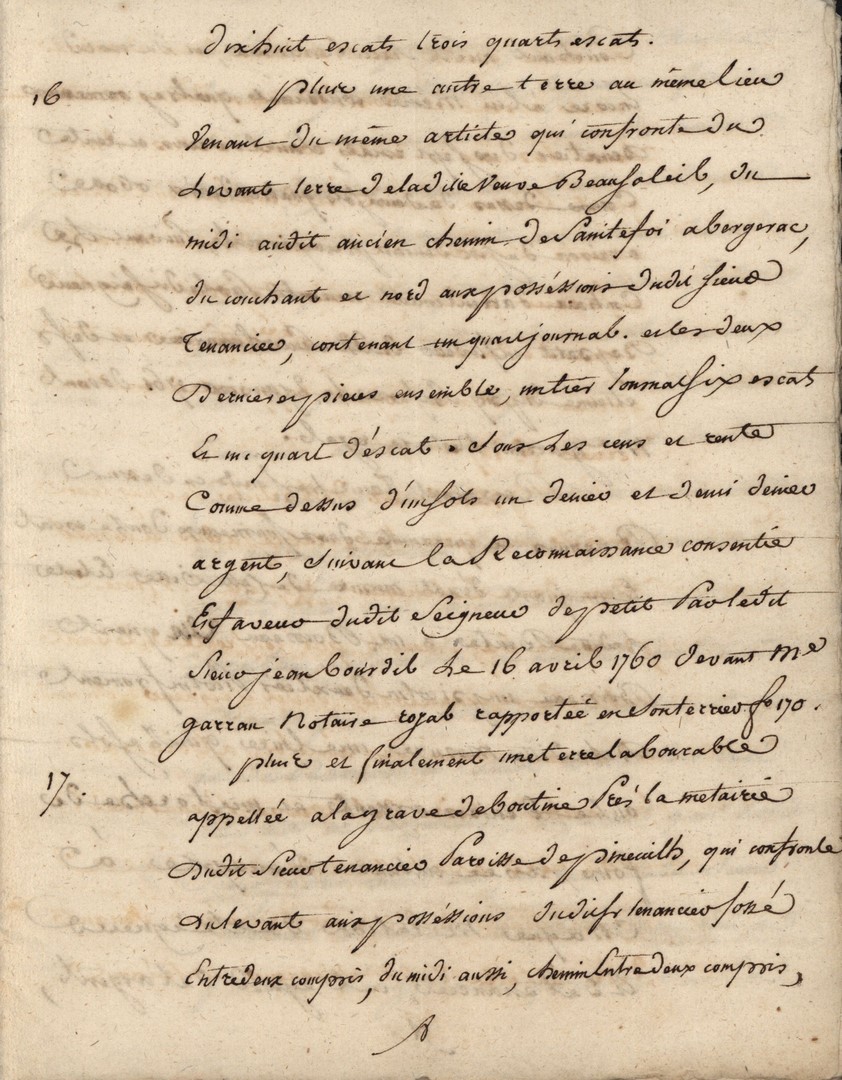 dixhuit escats trois quarts escat.
16 plus une autre terre au même lieu
venant du même article qui confronte du
levant terre de la dite veuve Beausoleil, du
midi audit ancien chemin de Sainte foi a bergerac,
du couchant et nord aux posséssions dudit sieur
tenancier, contenant un quart journal. et les deux
dernieres pieces ensemble, un tiers journal six escat
Et un quart d'éscat. sous les cens et rente
Comme dessus d'un sols un denier et demi denier
argent, suivant la Reconnaissance consentie
En faveur dudit Seigneur de petit par ledit
Sieur jean bourdil le 16 avril 1760 devant Me
garrau Notaire royal rapportée en son terrier fo 170.
17. plus et finalement une terre labourable
appellée a la grave de boutine Près la metairie
dudit Sieur tenancier Paroisse de pineuilh, qui confronte
du levant aux posséssions dudit sr tenancier fossé
Entre deux compris, du midi aussi, chemin Entre deux compris,